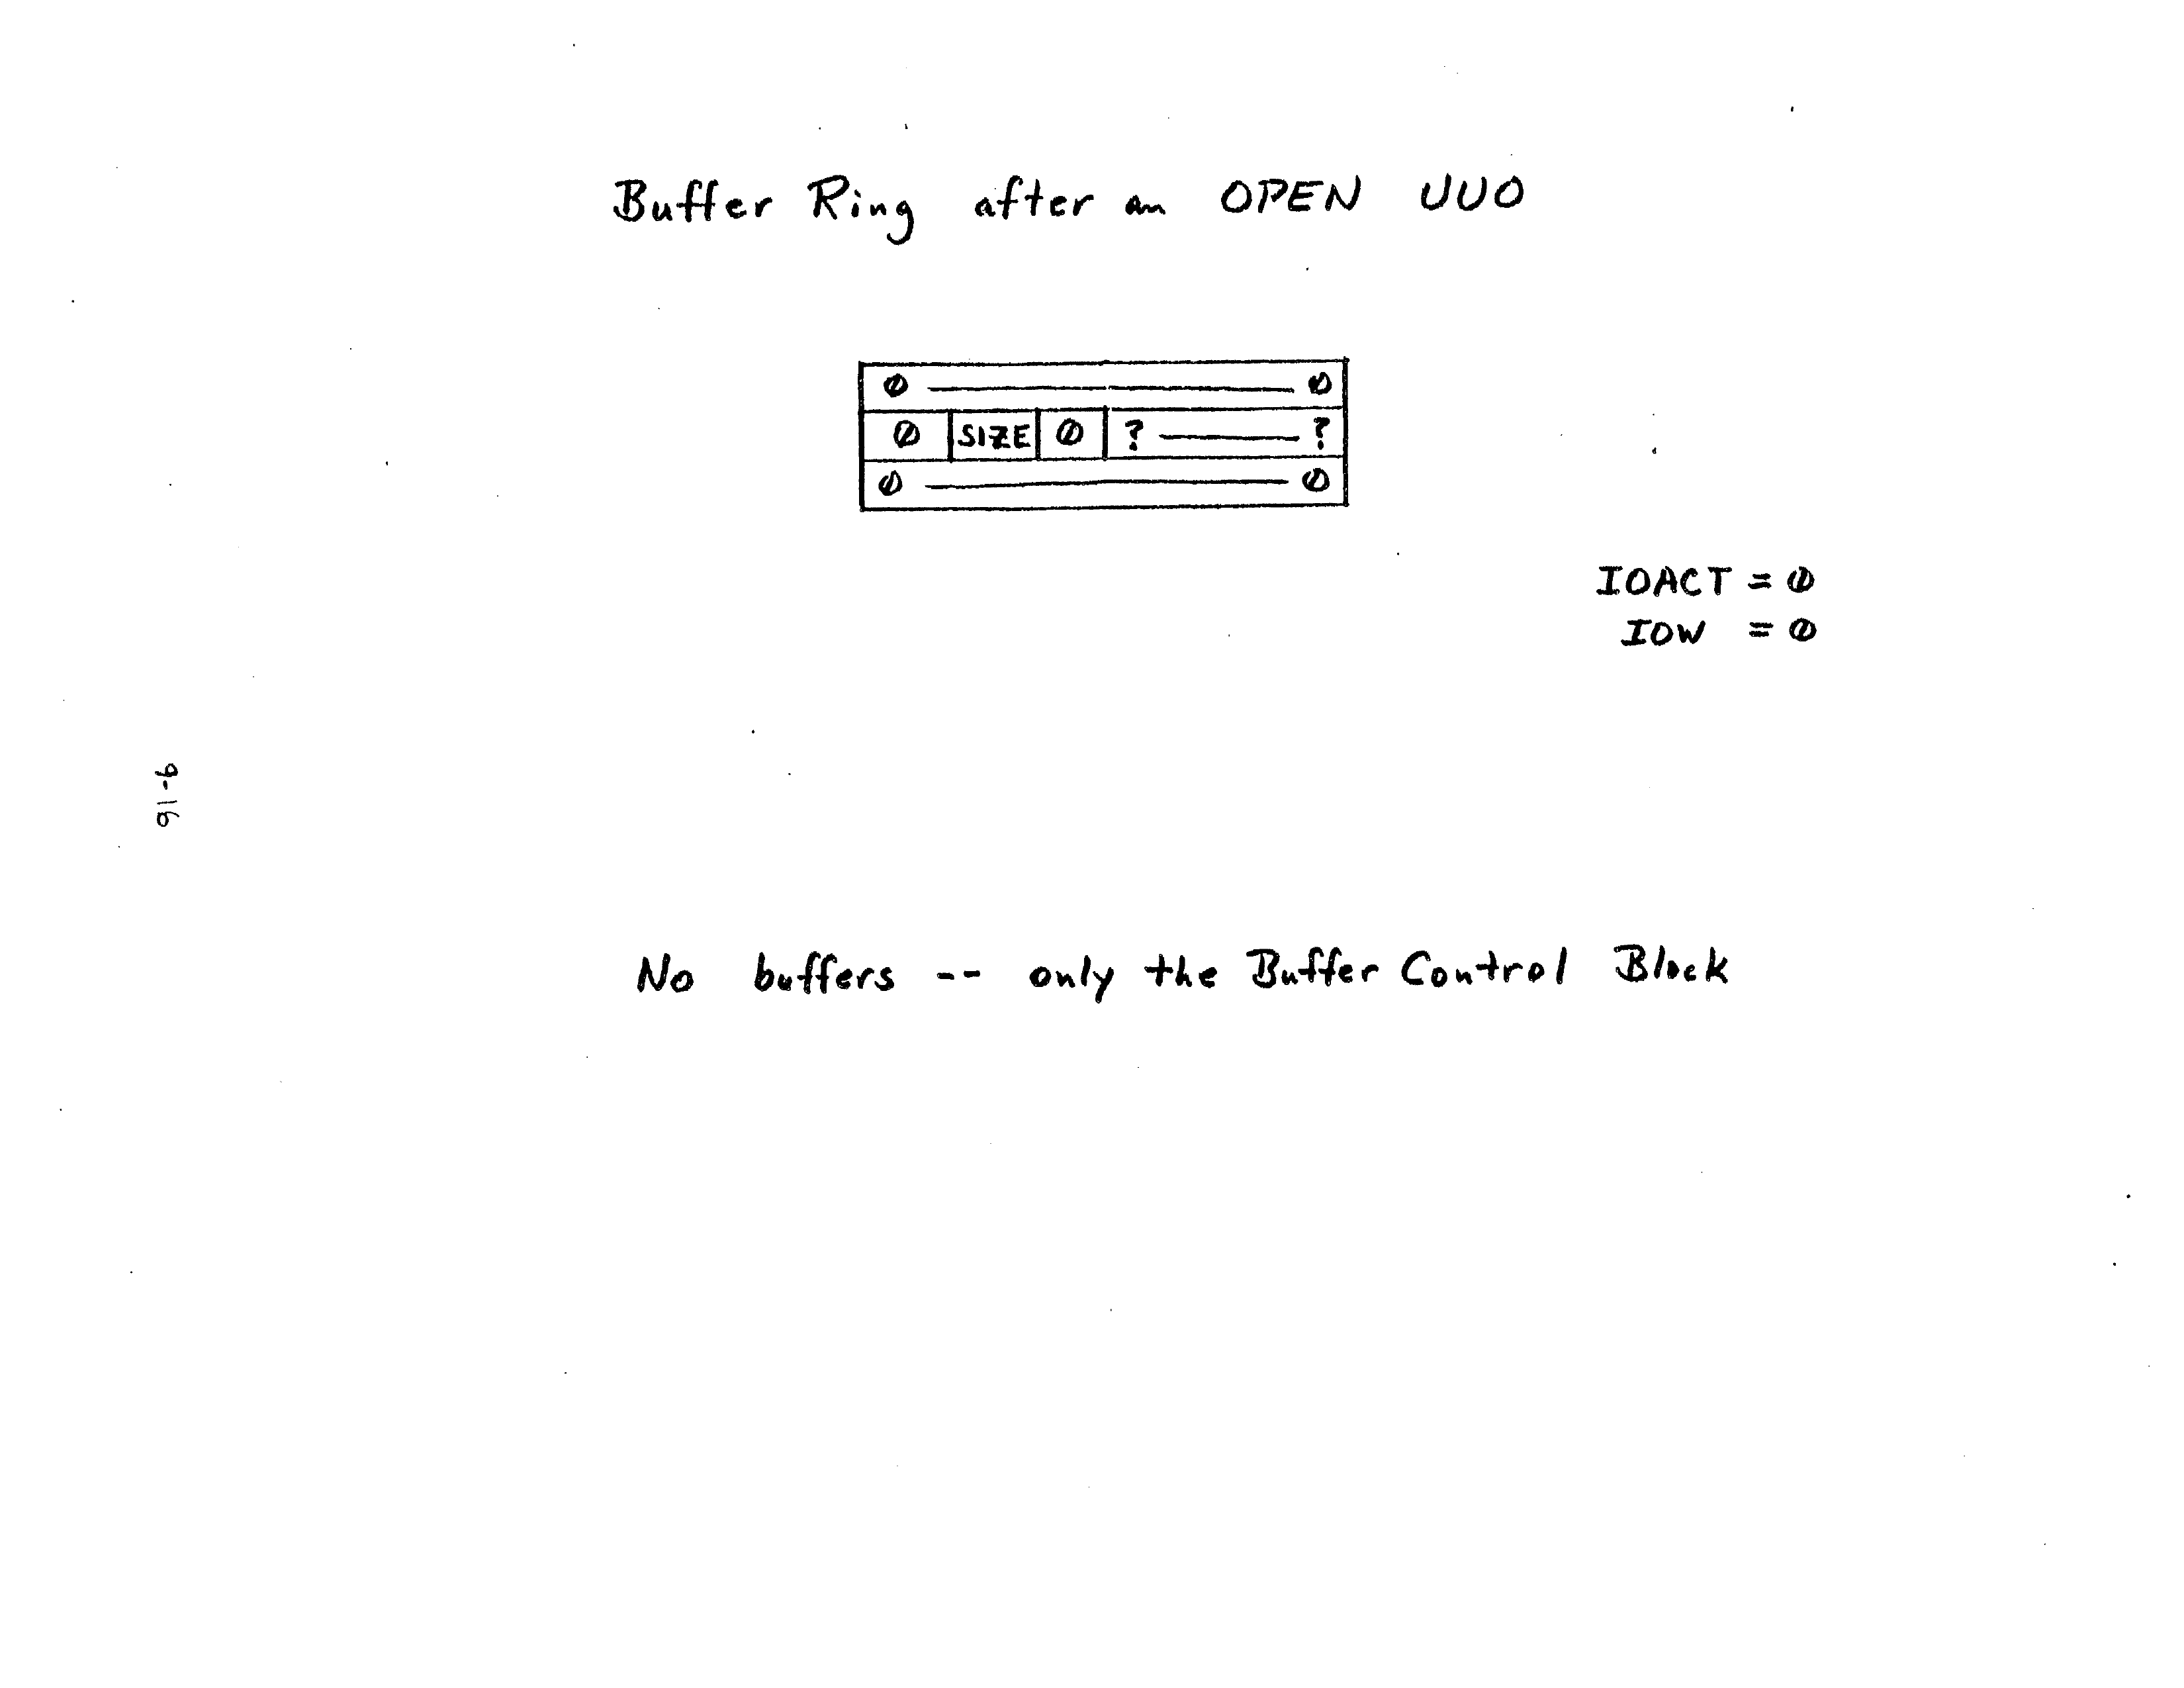 Buffer Ring after an OPEN UUO
0 ————— 0
0 SIZE 0 ? ——— ?
0 ————— 0
IOACT = 0
IOW = 0
9-16
No buffers -- only the Buffer Control Block